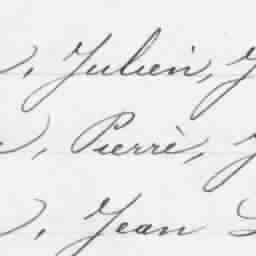 , Julien,
, Pierrè,
, Jean